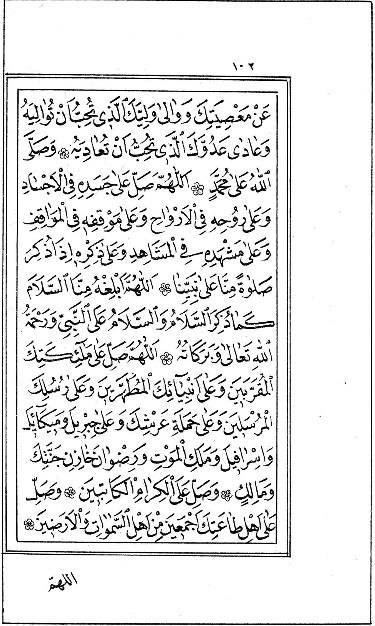 ١٠٢
عَنْ مَعْصِيَتِكَ وَوَالٰى وَلِيَّكَ ٱلَّذِي تُحِبُّ اَنْ تُوَالِيَهُ
وَعَادٰى عَدُوَّكَ ٱلَّذِي تُحِبُّ اَنْ تُعَادِيَهُ ۞ وَصَلَّى
ٱللهُ عَلٰى مُحَمَّدٍ ۞ اَللّٰهُمَّ صَلِّ عَلٰى جَسَدِهِ فِي ٱلْاَجْسَادِ
وَعَلٰى رُوحِهِ فِي ٱلْاَرْوَاحِ وَعَلٰى مَوْقِفِهِ فِي ٱلْمَوَاقِفِ
وَعَلٰى مَشْهَدِهِ فِي ٱلْمَشَاهِدِ وَعَلٰى ذِكْرِهِ اِذَا ذُكِرَ
صَلٰوةً مِنَّا عَلٰى نَبِيِّنَا ۞ اَللّٰهُمَّ اَبْلِغْهُ مِنَّا ٱلسَّلَامَ
كَمَا ذُكِرَ ٱلسَّلَامُ وَٱلسَّلَامُ عَلَى ٱلنَّبِيِّ وَرَحْمَةُ
ٱللهِ تَعَالٰى وَبَرَكَاتُهُ ۞ اَللّٰهُمَّ صَلِّ عَلٰى مَلٰئِكَتِكَ
ٱلْمُقَرَّبِينَ وَعَلٰى اَنْبِيَائِكَ ٱلْمُطَهَّرِينَ وَعَلٰى رُسُلِكَ
ٱلْمُرْسَلِينَ وَعَلٰى حَمَلَةِ عَرْشِكَ وَعَلٰى جِبْرِيلَ وَمِيكَائِلَ
وَاِسْرَافِيلَ وَمَلَكِ ٱلْمَوْتِ وَرِضْوَانَ خَازِنِ جَنَّتِكَ
وَمَالِكٍ ۞ وَصَلِّ عَلَى ٱلْكِرَامِ ٱلْكَاتِبِينَ ۞ وَصَلِّ
عَلٰى اَهْلِ طَاعَتِكَ اَجْمَعِينَ مِنْ اَهْلِ ٱلسَّمٰوَاتِ وَٱلْاَرَضِينَ ۞
اللهمّ